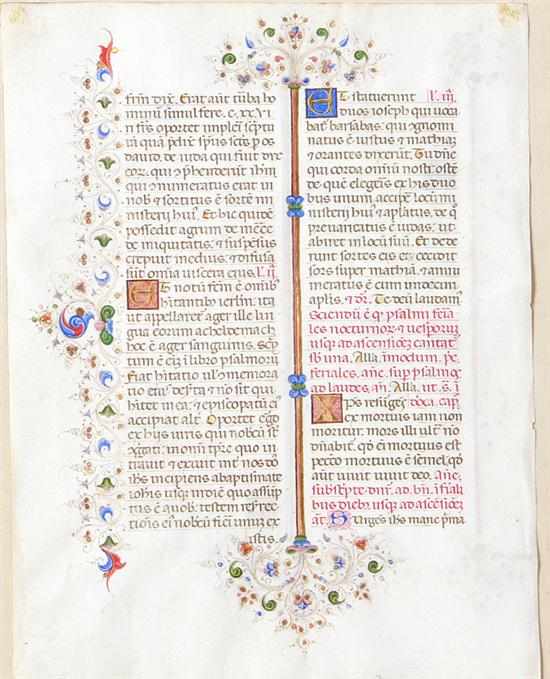 frm̄ dix̄. Erat aut̄ tūba ho
minū simul fere. c. xx. Viri
fr̄s oportet impleri sc̄ptu
rā quā p̄dix̄ sp̄us sc̄s p̄ os
dauid. de iuda qui fuit dux
eor. qui cp̄henderūt ihm̄
qui ɔnumeratus erat in
nob̄ & sortitus ē sortē mi
nisterij huī. Et hic quidē
possedit agrum de mēcē
de iniquitatis: & suspēsus
crepuit medius: & diffusa
sūt om̄ia uiscera eius. l̄. ij.
Et notū fcm̄ ē om̄ib
hītantibꝰ ierlm̄: ita
ut appellaret ager ille lin
gua eorum acheldemach
hoc ē ager sanguinis. Sc̄p
tum ē eī i libro psalmorū
Fiat hītatio ul̄ memora
tio eiꝰ deserta & nō sit qui
hītet in ea: & episcopatū eiꝰ
accipiat alt̄. Oportet ergo
ex hijs uiris qui nobcū st̄
ɔggati: in om̄i tp̄re quo in
trauit & exiuit int̄ nos dn̄s
ihs incipiens abaptismate
ioh̄is usq; indiē quo assūp
tus ē anob. testem resr̄rec
tionis eī nobcū fieri unuɜ ex
istis.
Et statuerunt l̄. iij.
duos ioseph qui uoca
bat̄ barsabas: qui ɔgnomi
natꝰ ē iustus & mathiaɜ
& orantes dixerūt. Tu dn̄e
qui corda om̄iū nosti oste
de quē elegeris ex his duo
bus unum accipe locū mi
nisterij huī & apl̄atus: de q̄
p̄uaricatus ē iudas: ut
abiret in locū suū. Et dede
runt sortes eis et cecidit
sors super mathiā: & annu
meratus ē cum undecim
apl̄is. & c̄r. Te deū laudam̄
Sciendū ē q̄ psalmi feria
les nocturnor & uesperor
usq; ad ascensiōeɜ cantāt̄
sb una. Alla. inmodum. p̄s.
feriales. an̄e. sup psalmoɜ
ad laudes. an̄. Alla. ut. s̄. ī
Xps resuḡes doca. cap̄.
ex mortuis iam non
moritur: mors illi ult̄ nō
dn̄abit̄. qd̄ eī mortuus est
pecc̄o mortuus ē semel. qd̄
aut̄ uiuit uiuit deo. An̄e
subsc̄pte dn̄r. ad. bn̄. in ferial
bus diebɜ. usq; ad ascēsiōeɜ
āt̄. Surgēs ihs mane p̄ma